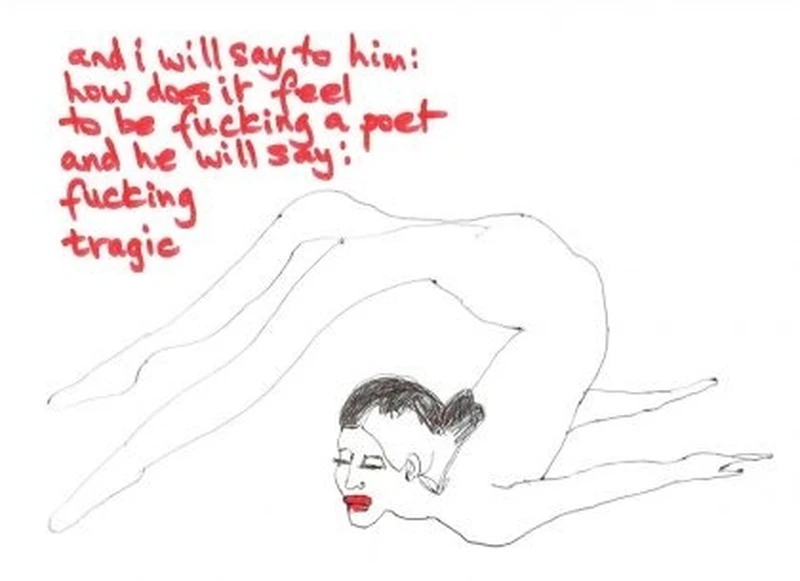 and i will say to him:
how does it feel
to be fucking a poet
and he will say:
fucking
tragic